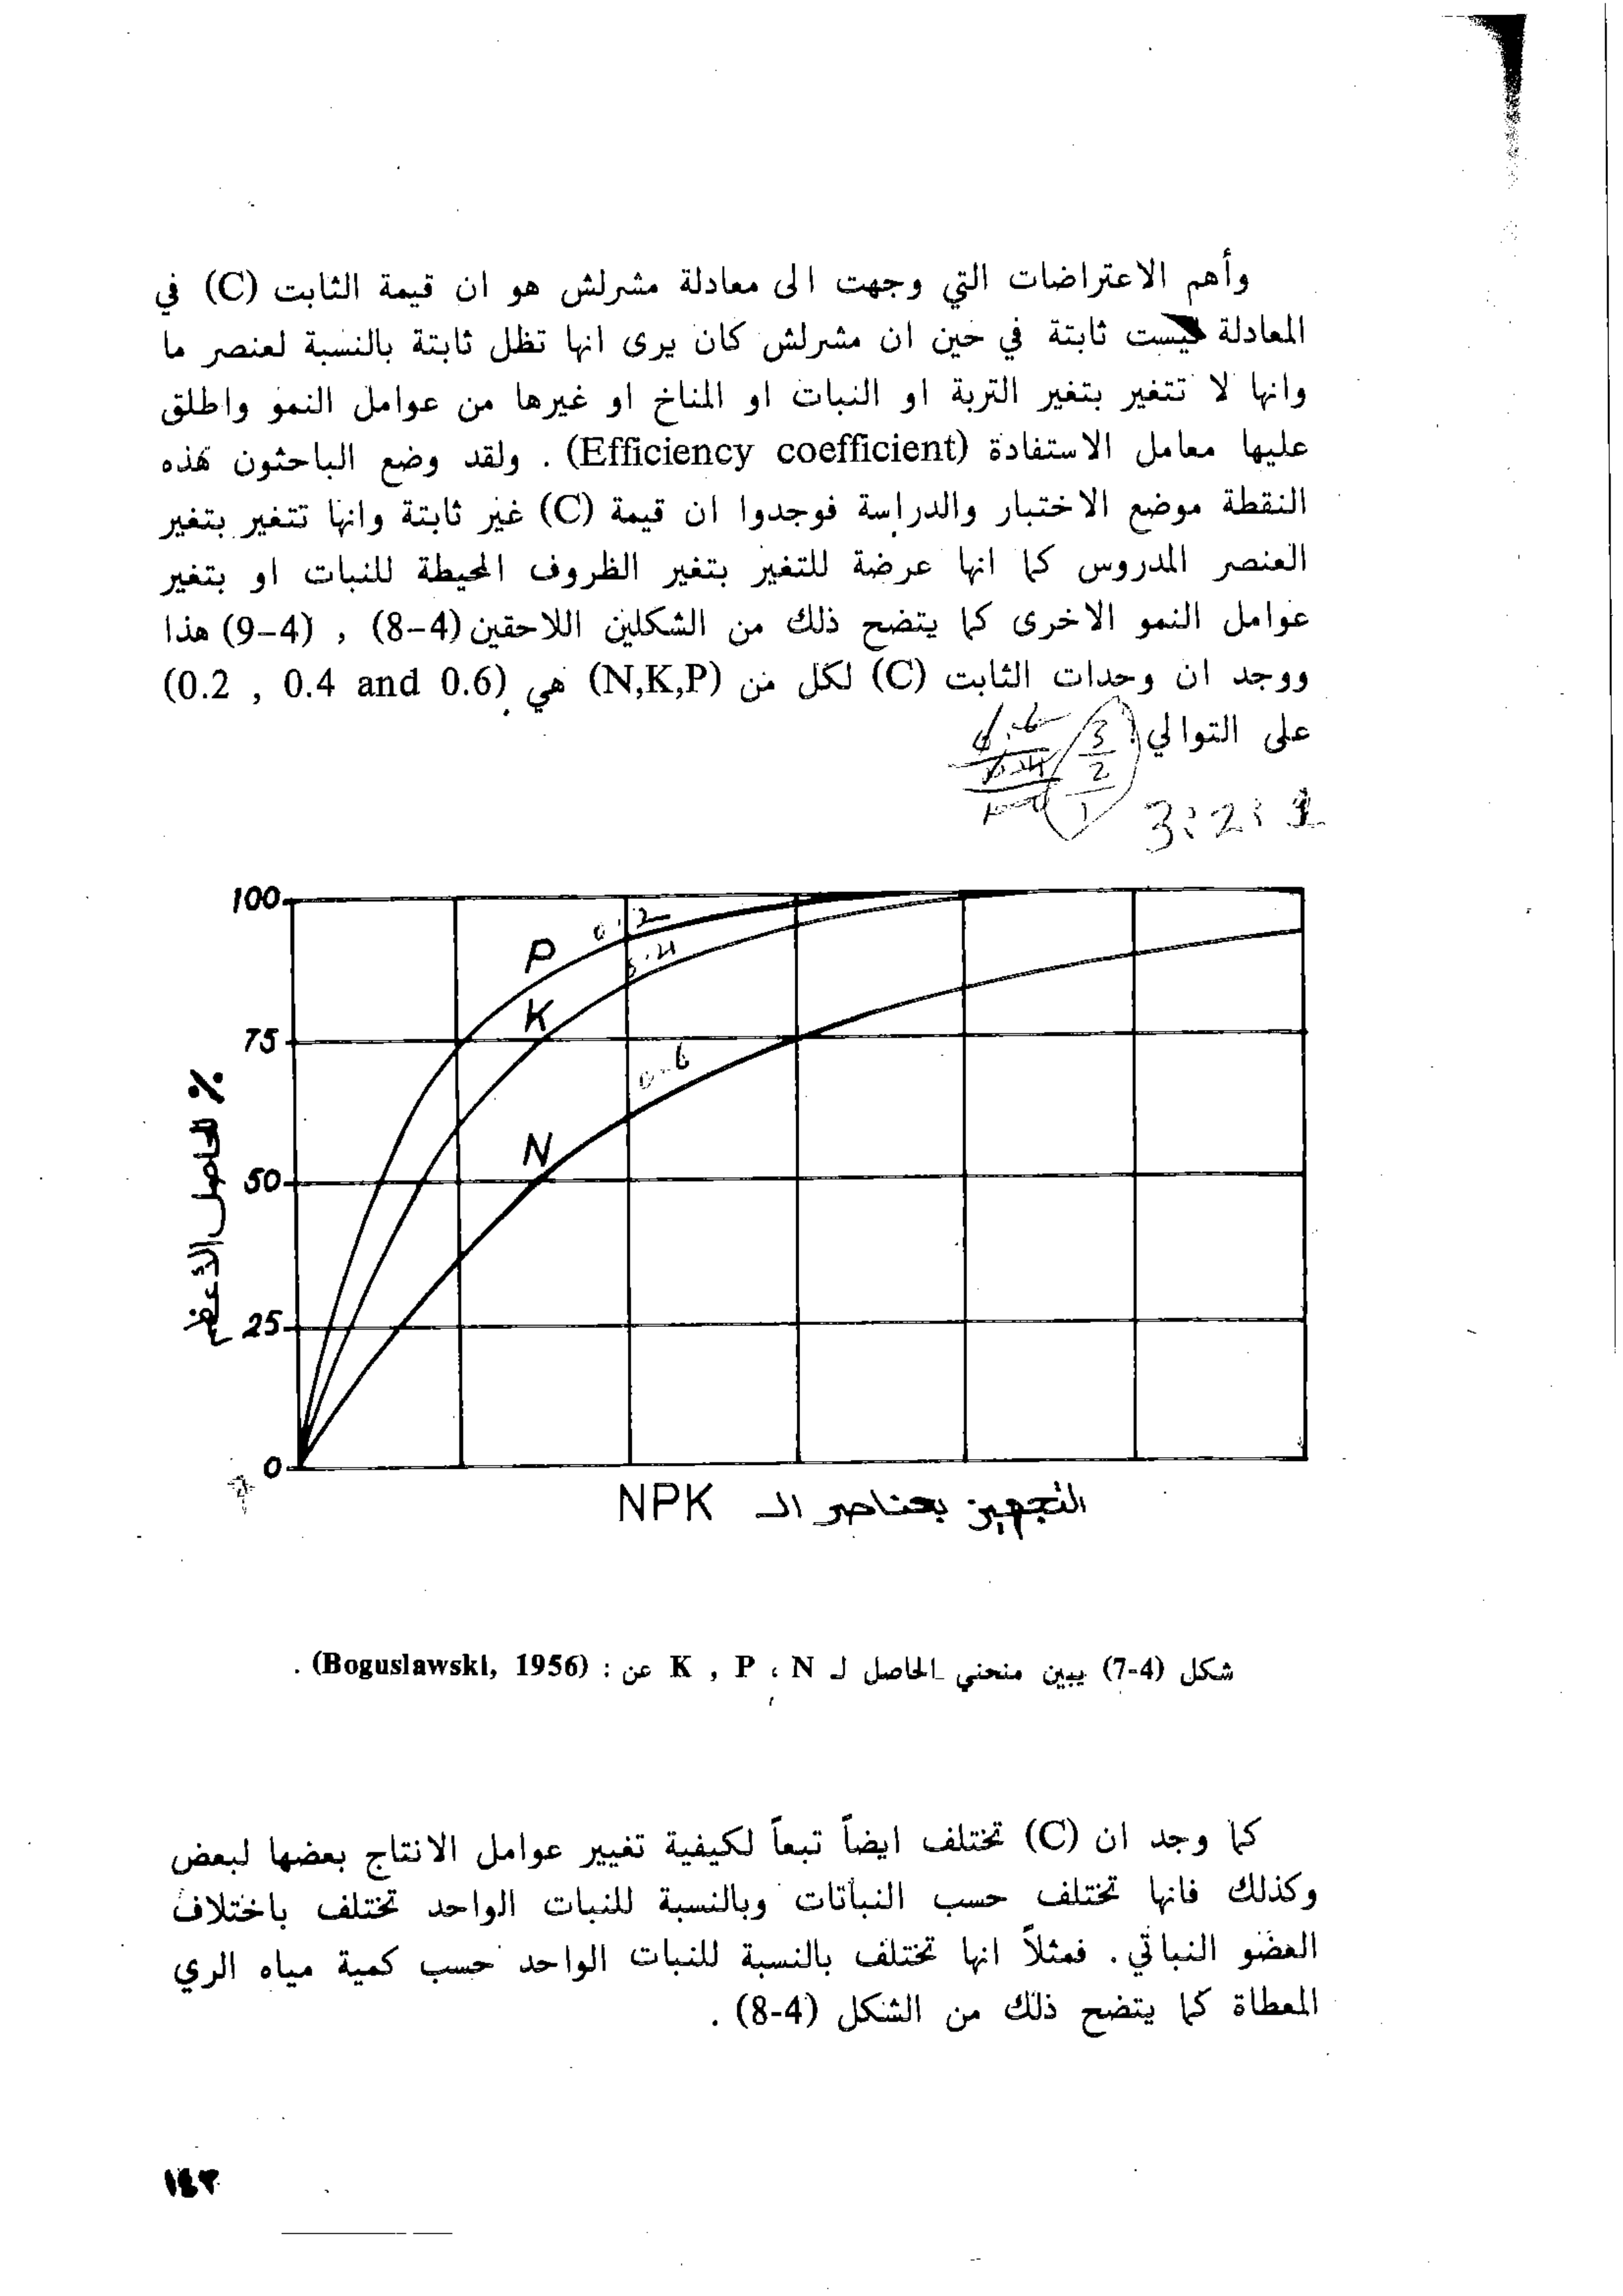 وأهم الاعتراضات التي وجهت الى معادلة مشرلش هو ان قيمة الثابت (C) في
المعادلة ليست ثابتة في حين ان مشرلش كان يرى انها تظل ثابتة بالنسبة لعنصر ما
وانها لا تتغير بتغير التربة او النبات او المناخ او غيرها من عوامل النمو واطلق
عليها معامل الاستفادة (Efficiency coefficient) . ولقد وضع الباحثون هذه
النقطة موضع الاختبار والدراسة فوجدوا ان قيمة (C) غير ثابتة وانها تتغير بتغير
العنصر المدروس كما انها عرضة للتغير بتغير الظروف المحيطة للنبات او بتغير
عوامل النمو الاخرى كما يتضح ذلك من الشكلين اللاحقين (4–8) , (4–9) هذا
ووجد ان وحدات الثابت (C) لكل من (N,K,P) هي (0.2 , 0.4 and 0.6)
على التوالي
3
2
1
3:2:1
100
75
50
25
0
% الحاصل الأعظم
P
0.2
K
0.4
N
0.6
التجهيز بعناصر الـ NPK
شكل (4-7) يبين منحني الحاصل لـ K , P ، N عن : (Boguslawski, 1956) .
كما وجد ان (C) تختلف ايضاً تبعاً لكيفية تغيير عوامل الانتاج بعضها لبعض
وكذلك فانها تختلف حسب النباتات وبالنسبة للنبات الواحد تختلف باختلاف
العضو النباتي . فمثلاً انها تختلف بالنسبة للنبات الواحد حسب كمية مياه الري
المعطاة كما يتضح ذلك من الشكل (4-8) .
١٤٣